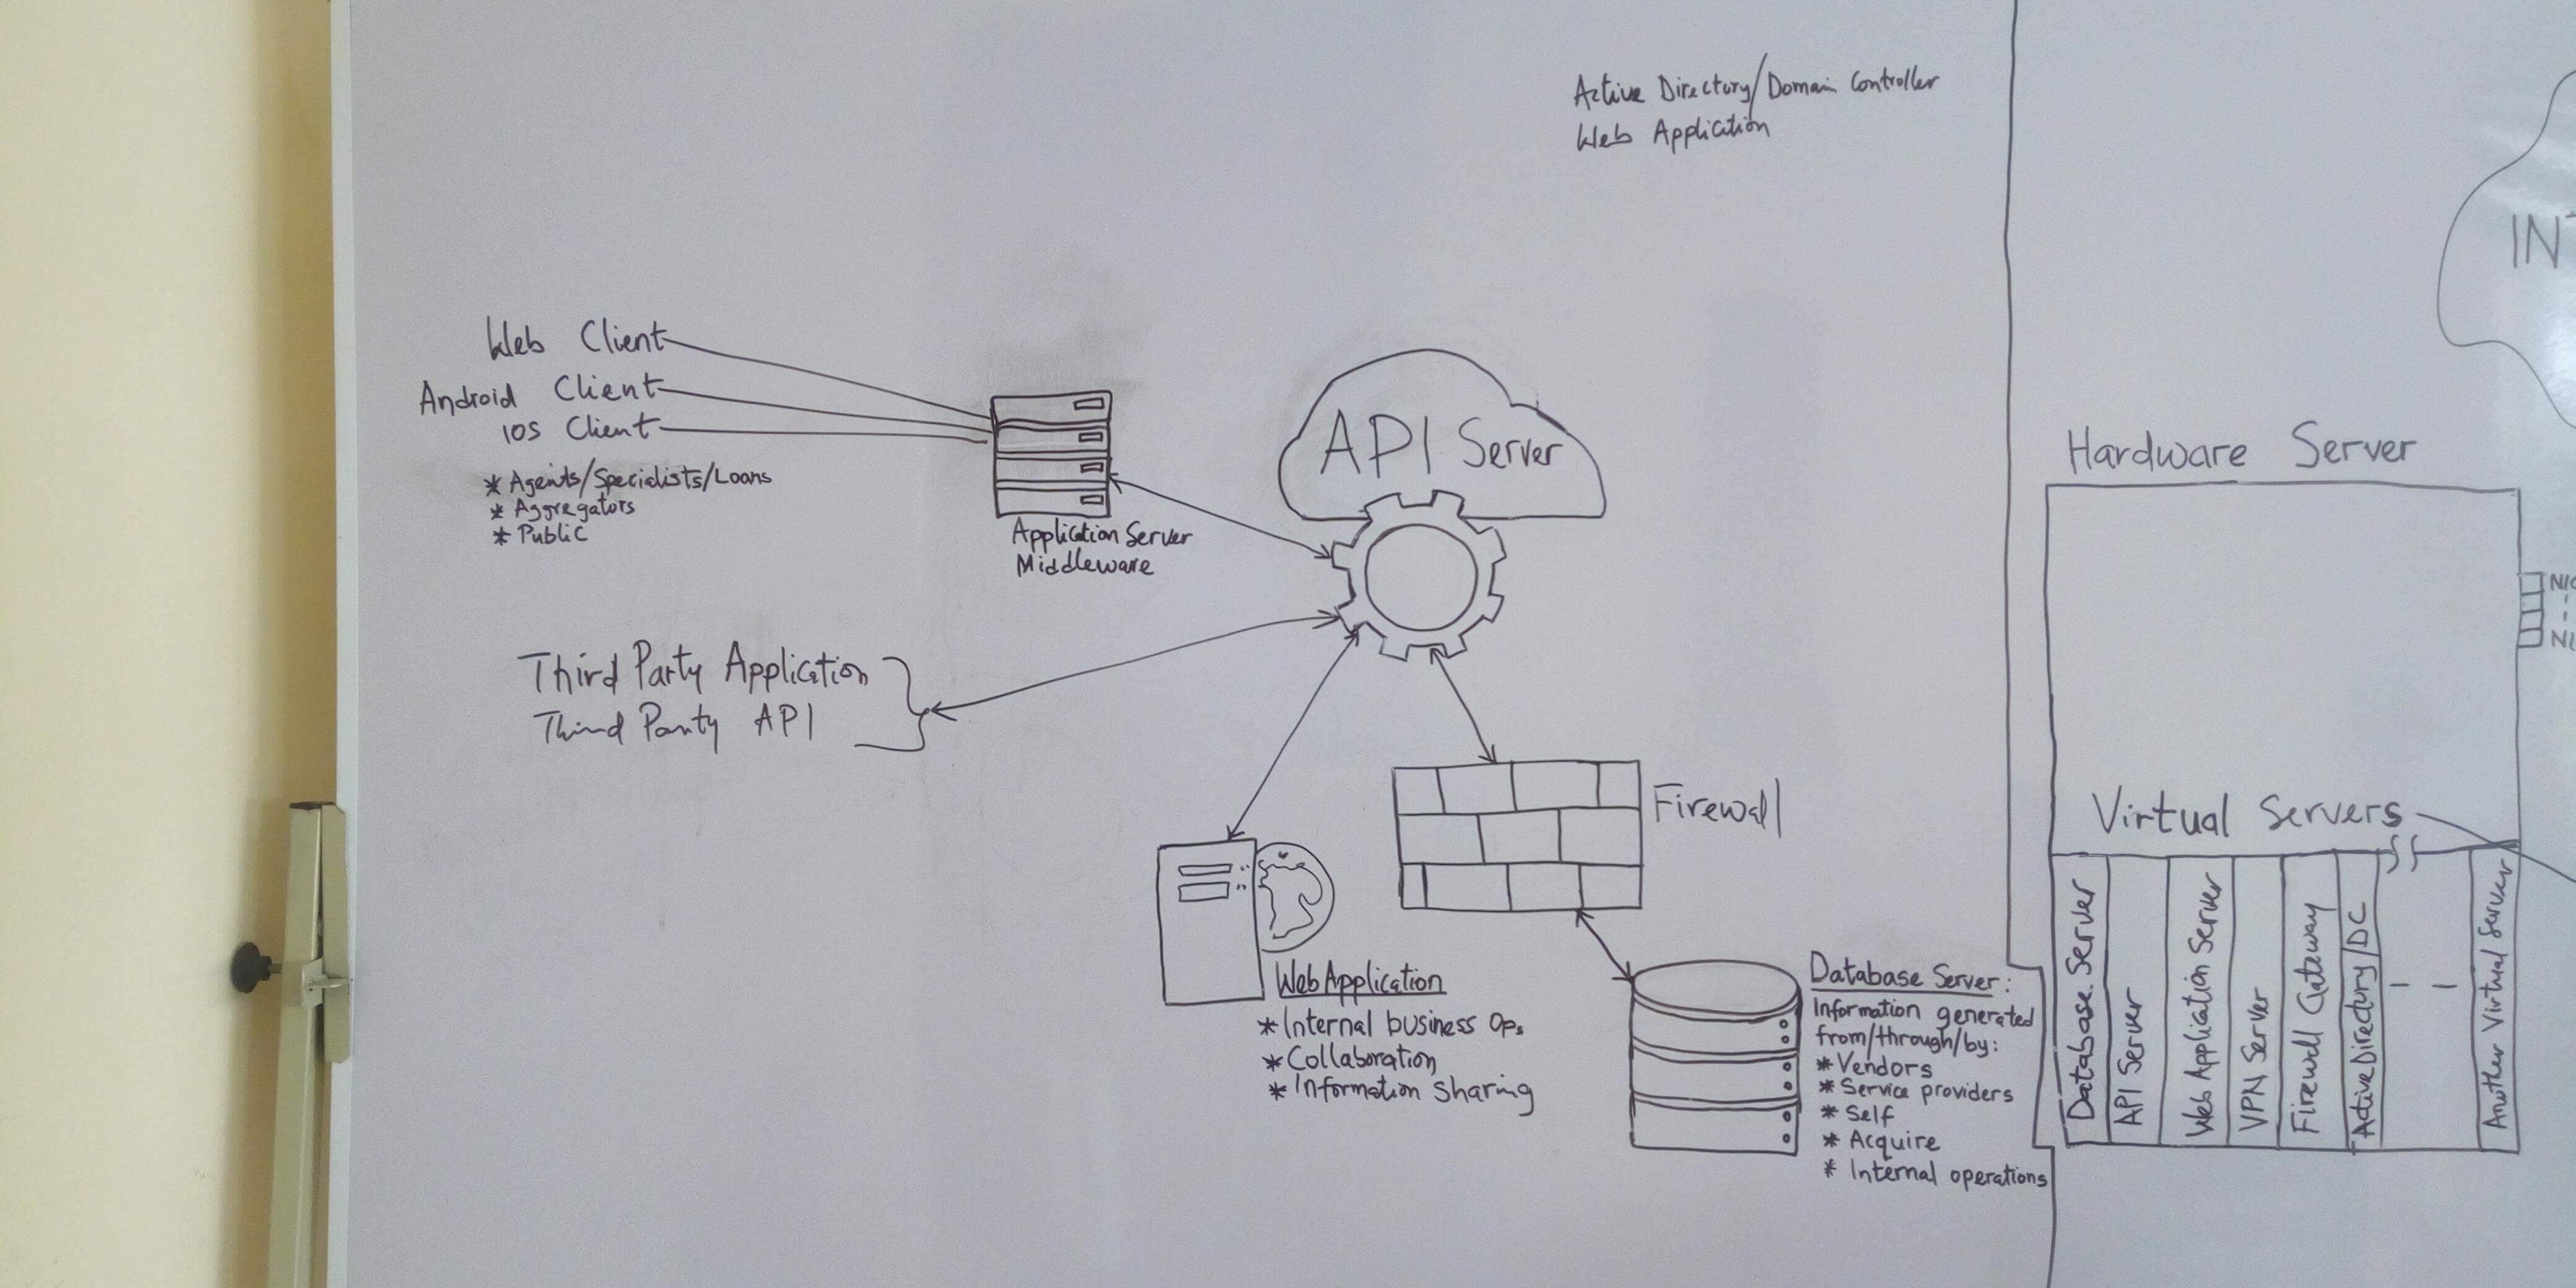 Active Directory/Domain Controller
Web Application
Web Client
Android Client
IOS Client
* Agents/Specialists/Loans
* Aggregators
* Public
Application Server
Middleware
API Server
Third Party Application
Third Party API
Firewall
Web Application
* Internal business Ops
* Collaboration
* Information Sharing
Database Server:
Information generated
from/through/by:
* Vendors
* Service providers
* Self
* Acquire
* Internal operations
Hardware Server
Virtual Servers
Database Server
API Server
Web Application Server
VPN Server
Firewall Gateway
Active Directory/DC
Another Virtual Server